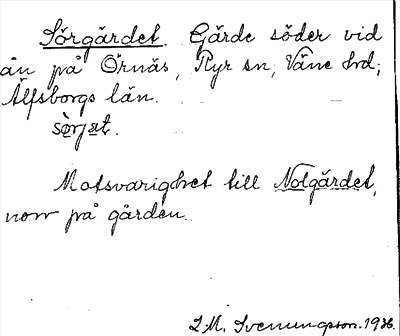 Sörgärdet. Gärde söder vid
ån på Örnäs, Ryr sn, Väne hd,
Älfsborgs län.
Motsvarighet till Nolgärdet,
norr på gården.
L M. Svenungsson. 1936.